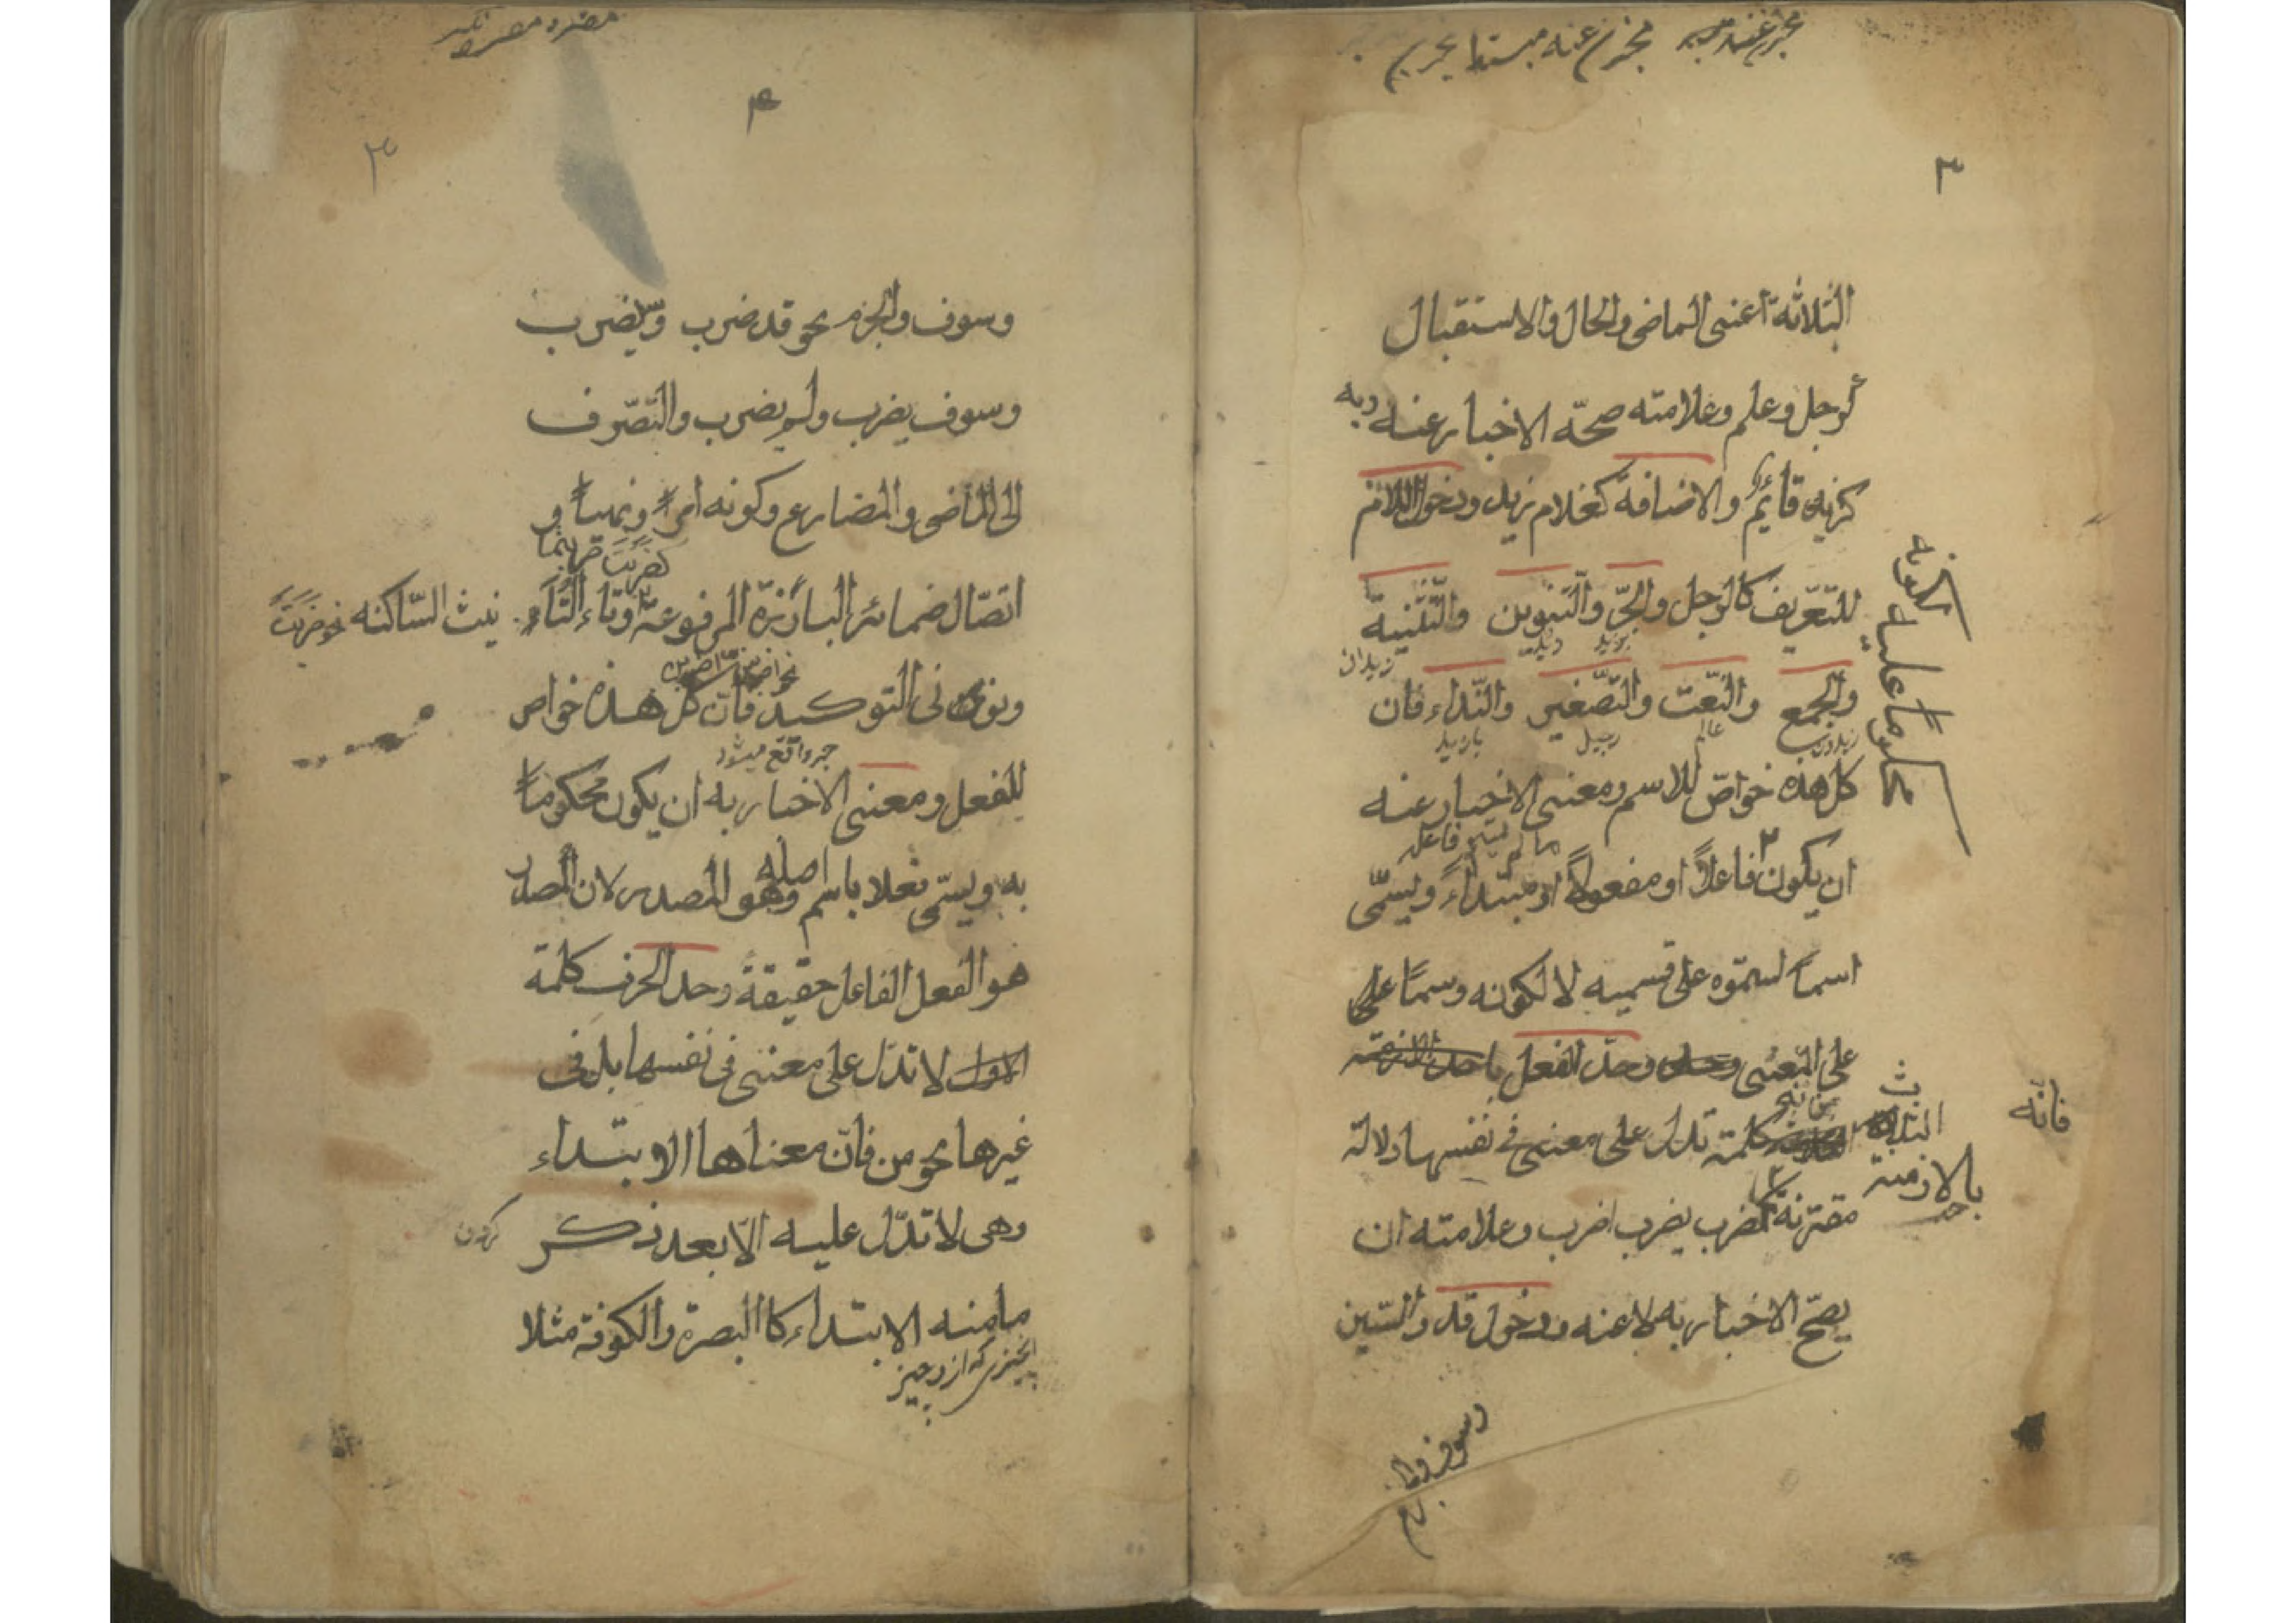 ٣
الثلاثة اعنى الماضى والحال والاستقبال
كرجل وعلم وعلامته صحّة الاخبار عنه وبه
كزيد قائم والاضافة كغلام زيد ودخول اللام
للتّعريف كالرجل والجرّ والتّنوين والتّثنية
بزيد زيدان
والجمع والنّعت والتّصغير والنّداء فان
زيدون عالم رجيل يا زيد
كل هذه خواصّ للاسم ومعنى الاخبار عنه
ما لم يسم فاعل
ان يكون فاعلاً او مفعولاً او مبتداءً ويسمّى
اسماً لسموّه على قسميه لا لكونه وسماً على
على المعنى وحدّ الفعل
كلمة تدل على معنى فى نفسها دلالة
مقترنة كضرب يضرب اضرب وعلامته ان
يصحّ الاخبار به لا عنه ودخول قد والسّين
لكونه
محكوماً عليه
فانّه
الثلاثة
بالازمنة
٤
وسوف والجزم نحو قد ضرب وسيضرب
وسوف يضرب ولم يضرب والتّصرّف
الى الماضى والمضارع وكونه امراً ونهياً و
كضربت ضربتما
اتصّال ضمائر البارزة المرفوعة وتاء التّاء نيث السّاكنه نحو ضربت
ونونى التوكيد فانّ كلّ هذه خواص
خبر واقع ميشود
للفعل ومعنى الاخبار به ان يكون محكوماً
به ويسمّى فعلا باسم اصله وهو المصدر لان المصدر
هو الفعل الفاعل حقيقة وحد الحرف كلمة
لا تدّل على معنى فى نفسها بل فى
غيرها نحو من فانّ معناها الابتداء
وهى لا تدّل عليه الّا بعد ذكر
كردن
ما منه الابتداء كا البصرة والكوفة مثلا